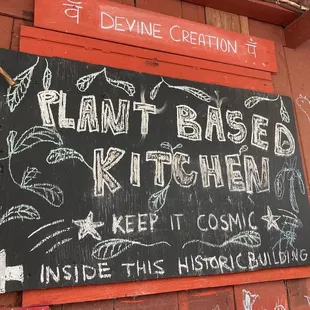 वं DEVINE CREATION वं
PLANT BASED
KITCHEN
KEEP IT COSMIC
INSIDE THIS HISTORIC BUILDING